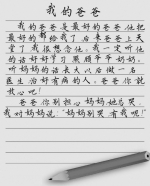 我的爸爸
我的爸爸是最好的爸爸他把
最好的都给我了后来爸爸上天
堂了我很想念他我一定听他
的话好好学习照顾爷爷奶奶，
听妈妈的话长大以后做一名
医生治好有病的人。爸爸你就
放心吧！
爸爸你别担心妈妈她总哭，
我对妈妈说：“妈妈别哭有我呢！”